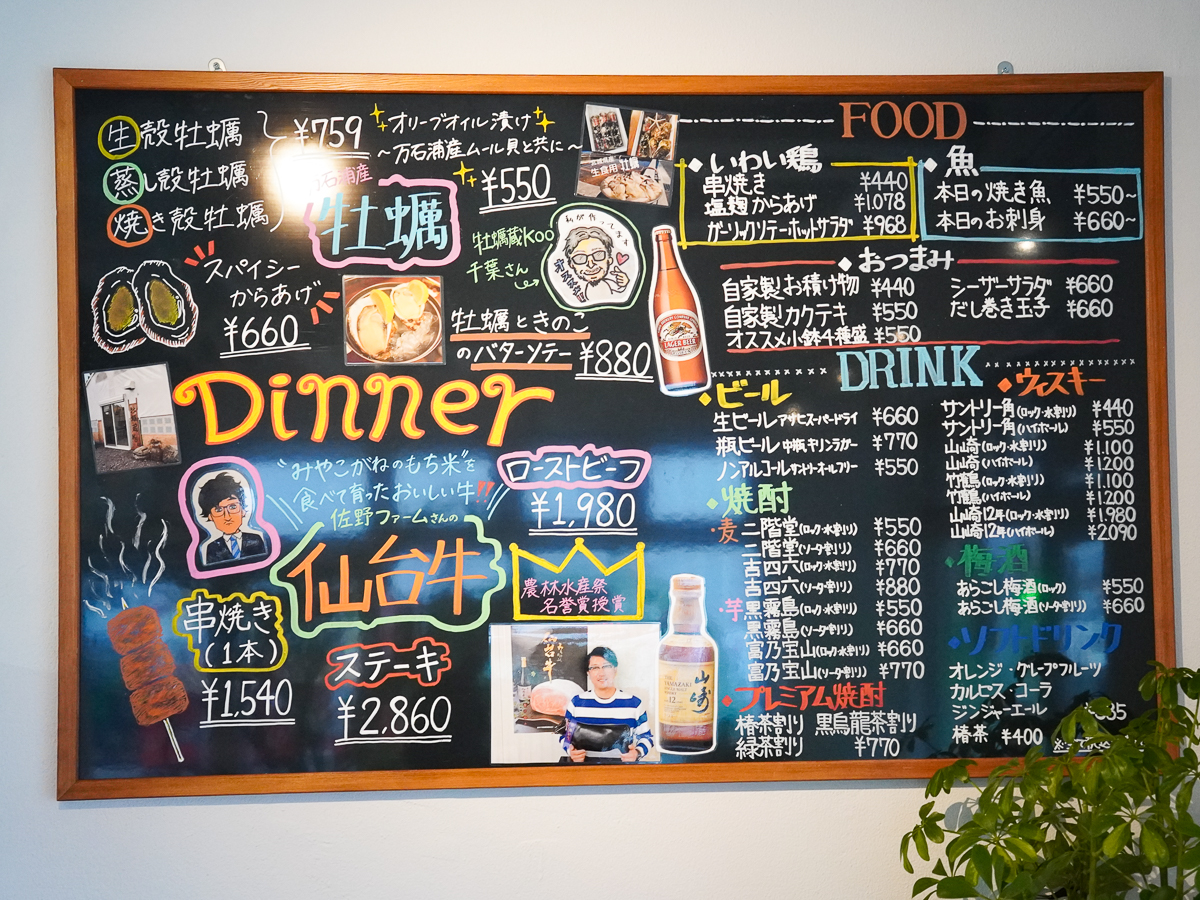 生殻牡蠣
蒸し殻牡蠣
焼き殻牡蠣
¥759
オリーブオイル漬け
～万石浦産ムール貝と共に～
¥550
万石浦産
牡蠣
スパイシー
からあげ
¥660
牡蠣蔵Koo
千葉さん
私が作ってます
牡蠣ときのこ
のバターソテー ¥880
生食用 牡蠣
LAGER BEER
Dinner
"みやこがねのもち米"を
食べて育ったおいしい牛!!
佐野ファームさんの
仙台牛
ローストビーフ
¥1,980
農林水産祭
名誉賞授賞
串焼き
(1本)
¥1,540
ステーキ
¥2,860
山崎
12
FOOD
いわい鶏
串焼き ¥440
塩麹からあげ ¥1,078
ガーリックソテーホットサラダ ¥968
魚
本日の焼き魚 ¥550~
本日のお刺身 ¥660~
おつまみ
自家製お積け物 ¥440
自家製カクテキ ¥550
オススメ小鉢4種盛 ¥550
シーザーサラダ ¥660
だし巻き玉子 ¥660
DRINK
ビール
生ビール アサヒスーパードライ ¥660
瓶ビール 中瓶キリンラガー ¥770
ノンアルコール サントリーオールフリー ¥550
焼酎
・麦 二階堂(ロック・水割り) ¥550
二階堂(ソーダ割り) ¥660
吉四六(ロック・水割り) ¥770
吉四六(ソーダ割り) ¥880
・芋 黒霧島(ロック・水割り) ¥550
黒霧島(ソーダ割り) ¥660
富乃宝山(ロック・水割り) ¥660
富乃宝山(ソーダ割り) ¥770
プレミアム焼酎
椿茶割り 黒烏龍茶割り
緑茶割り ¥770
ウィスキー
サントリー角(ロック・水割り) ¥440
サントリー角(ハイボール) ¥550
山崎(ロック・水割り) ¥1,100
山崎(ハイボール) ¥1,200
竹鶴(ロック・水割り) ¥1,100
竹鶴(ハイボール) ¥1,200
山崎12年(ロック・水割り) ¥1,980
山崎12年(ハイボール) ¥2,090
梅酒
あらごし梅酒(ロック) ¥550
あらごし梅酒(ソーダ割り) ¥660
ソフトドリンク
オレンジ・グレープフルーツ
カルピス・コーラ
ジンジャーエール
椿茶 ¥400